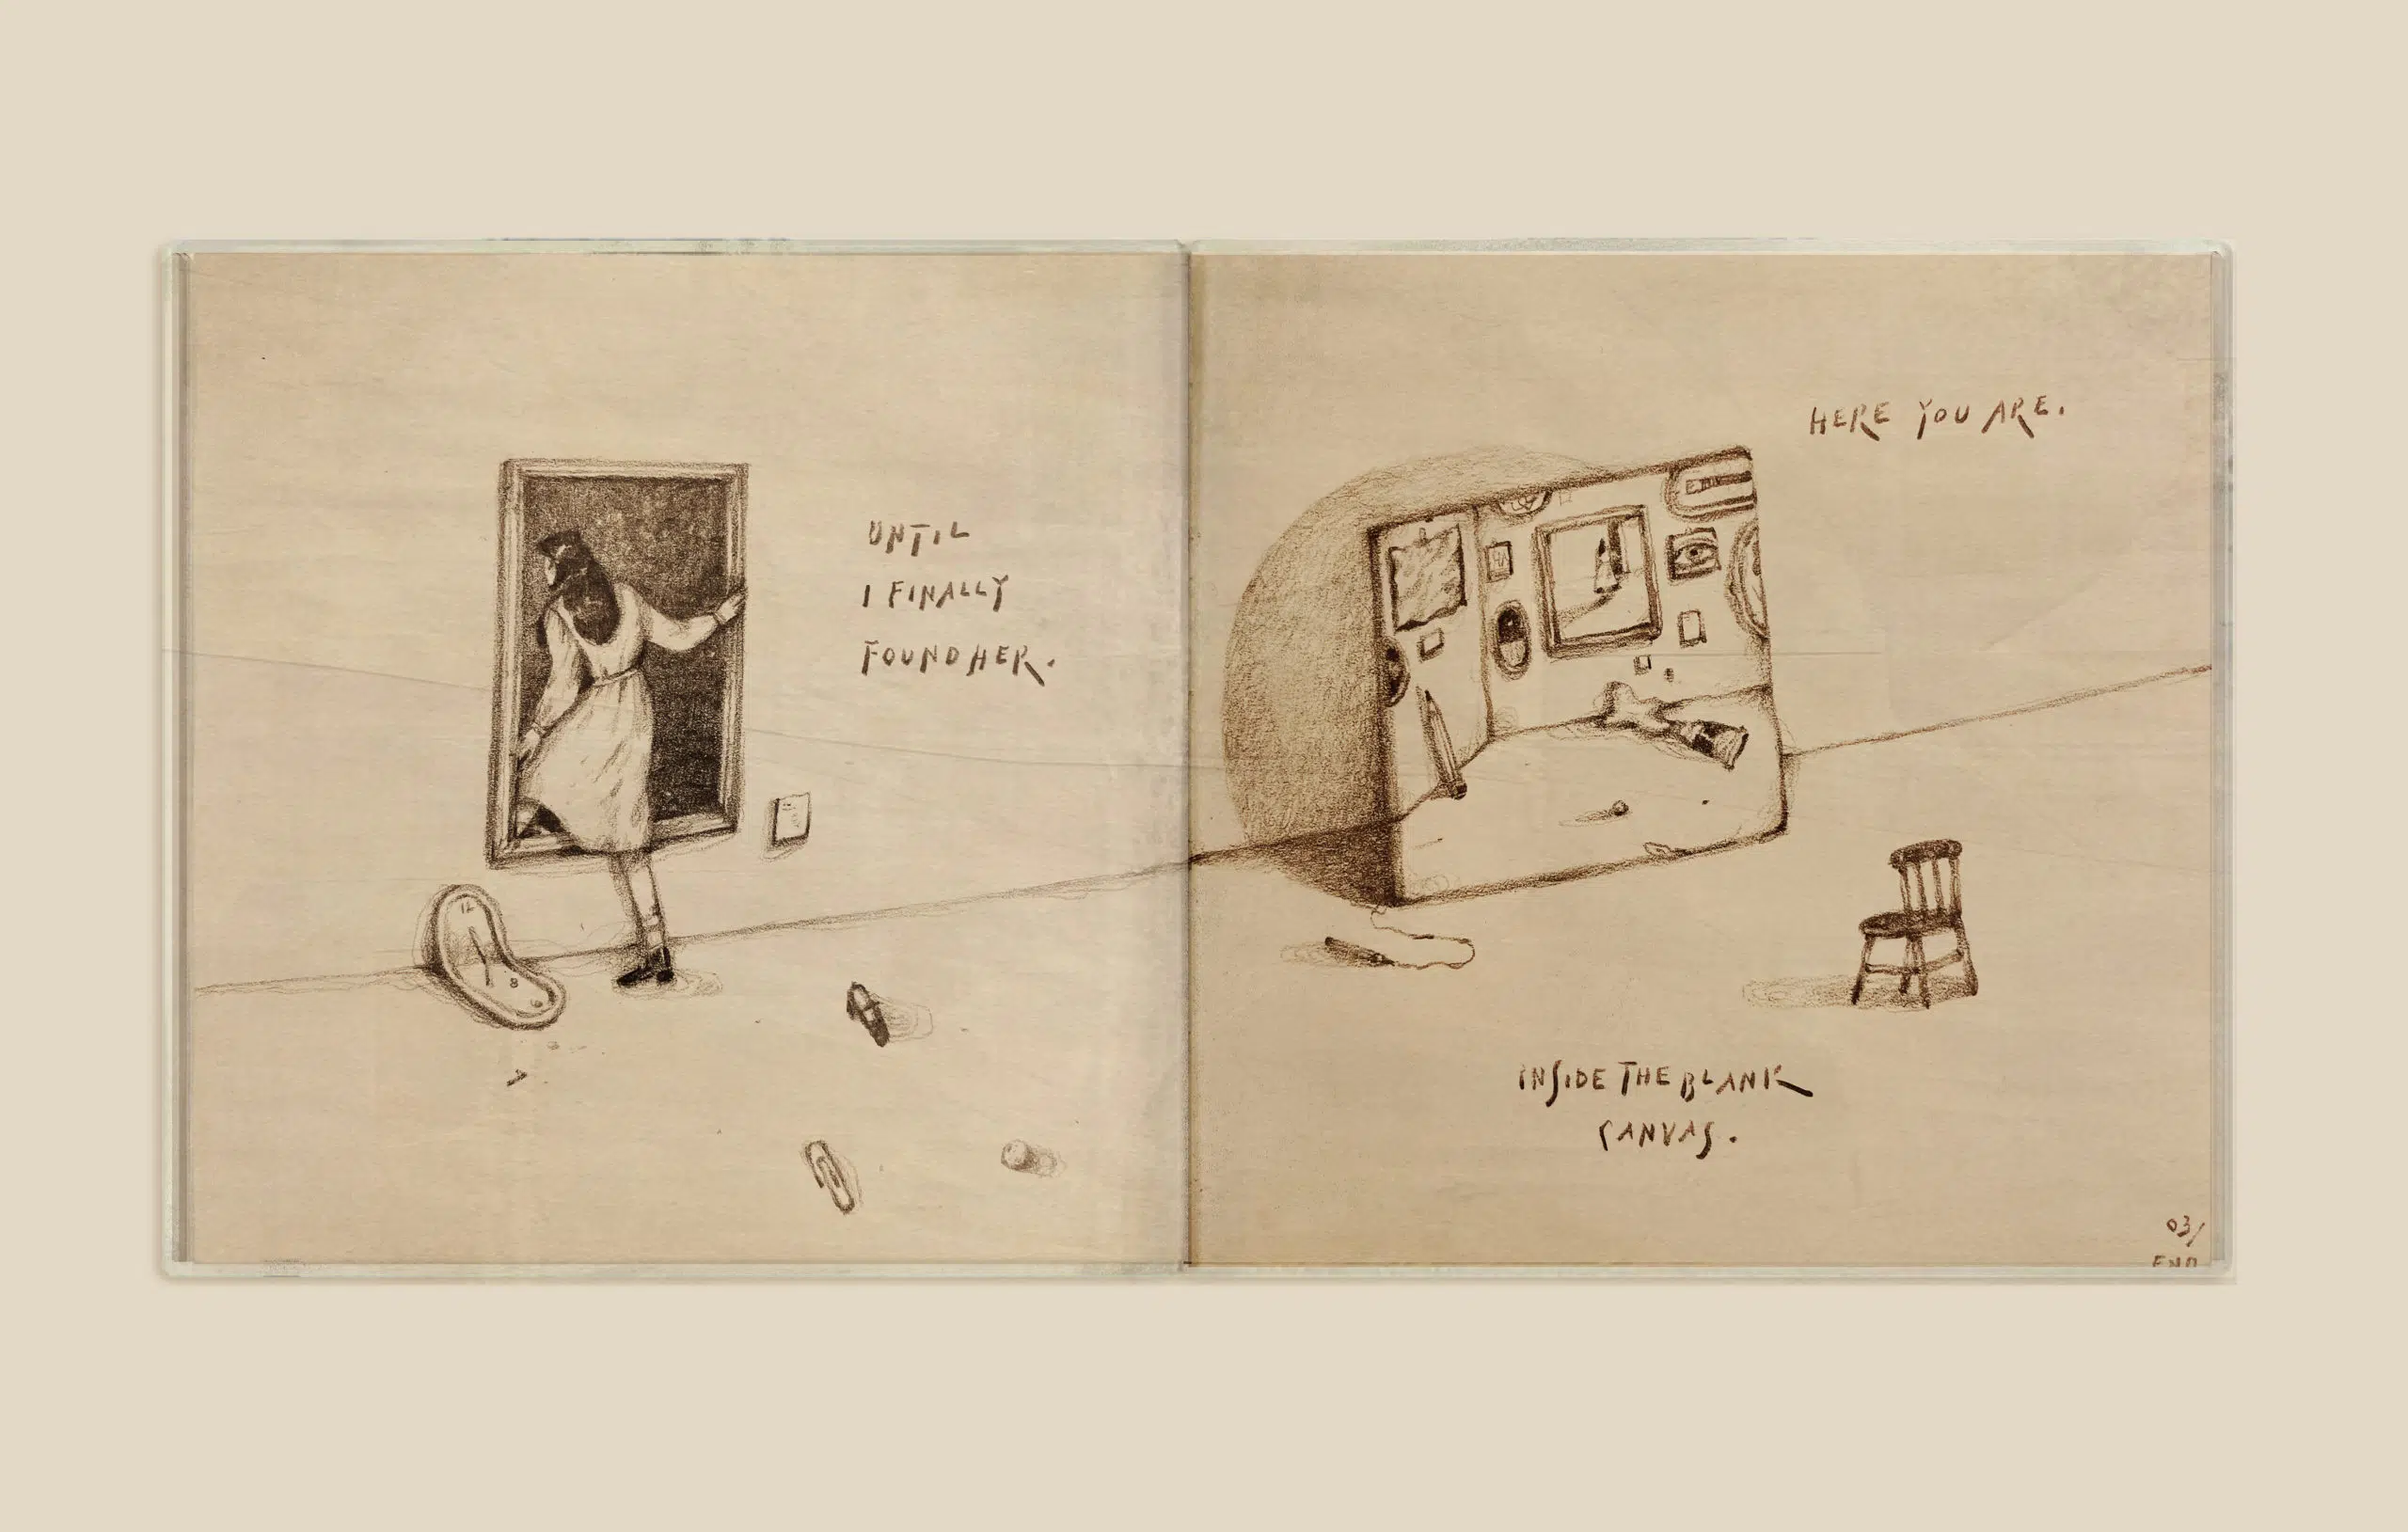 UNTIL
I FINALLY
FOUND HER.
12
8
HERE YOU ARE.
INSIDE THE BLANK
CANVAS.
03/
END